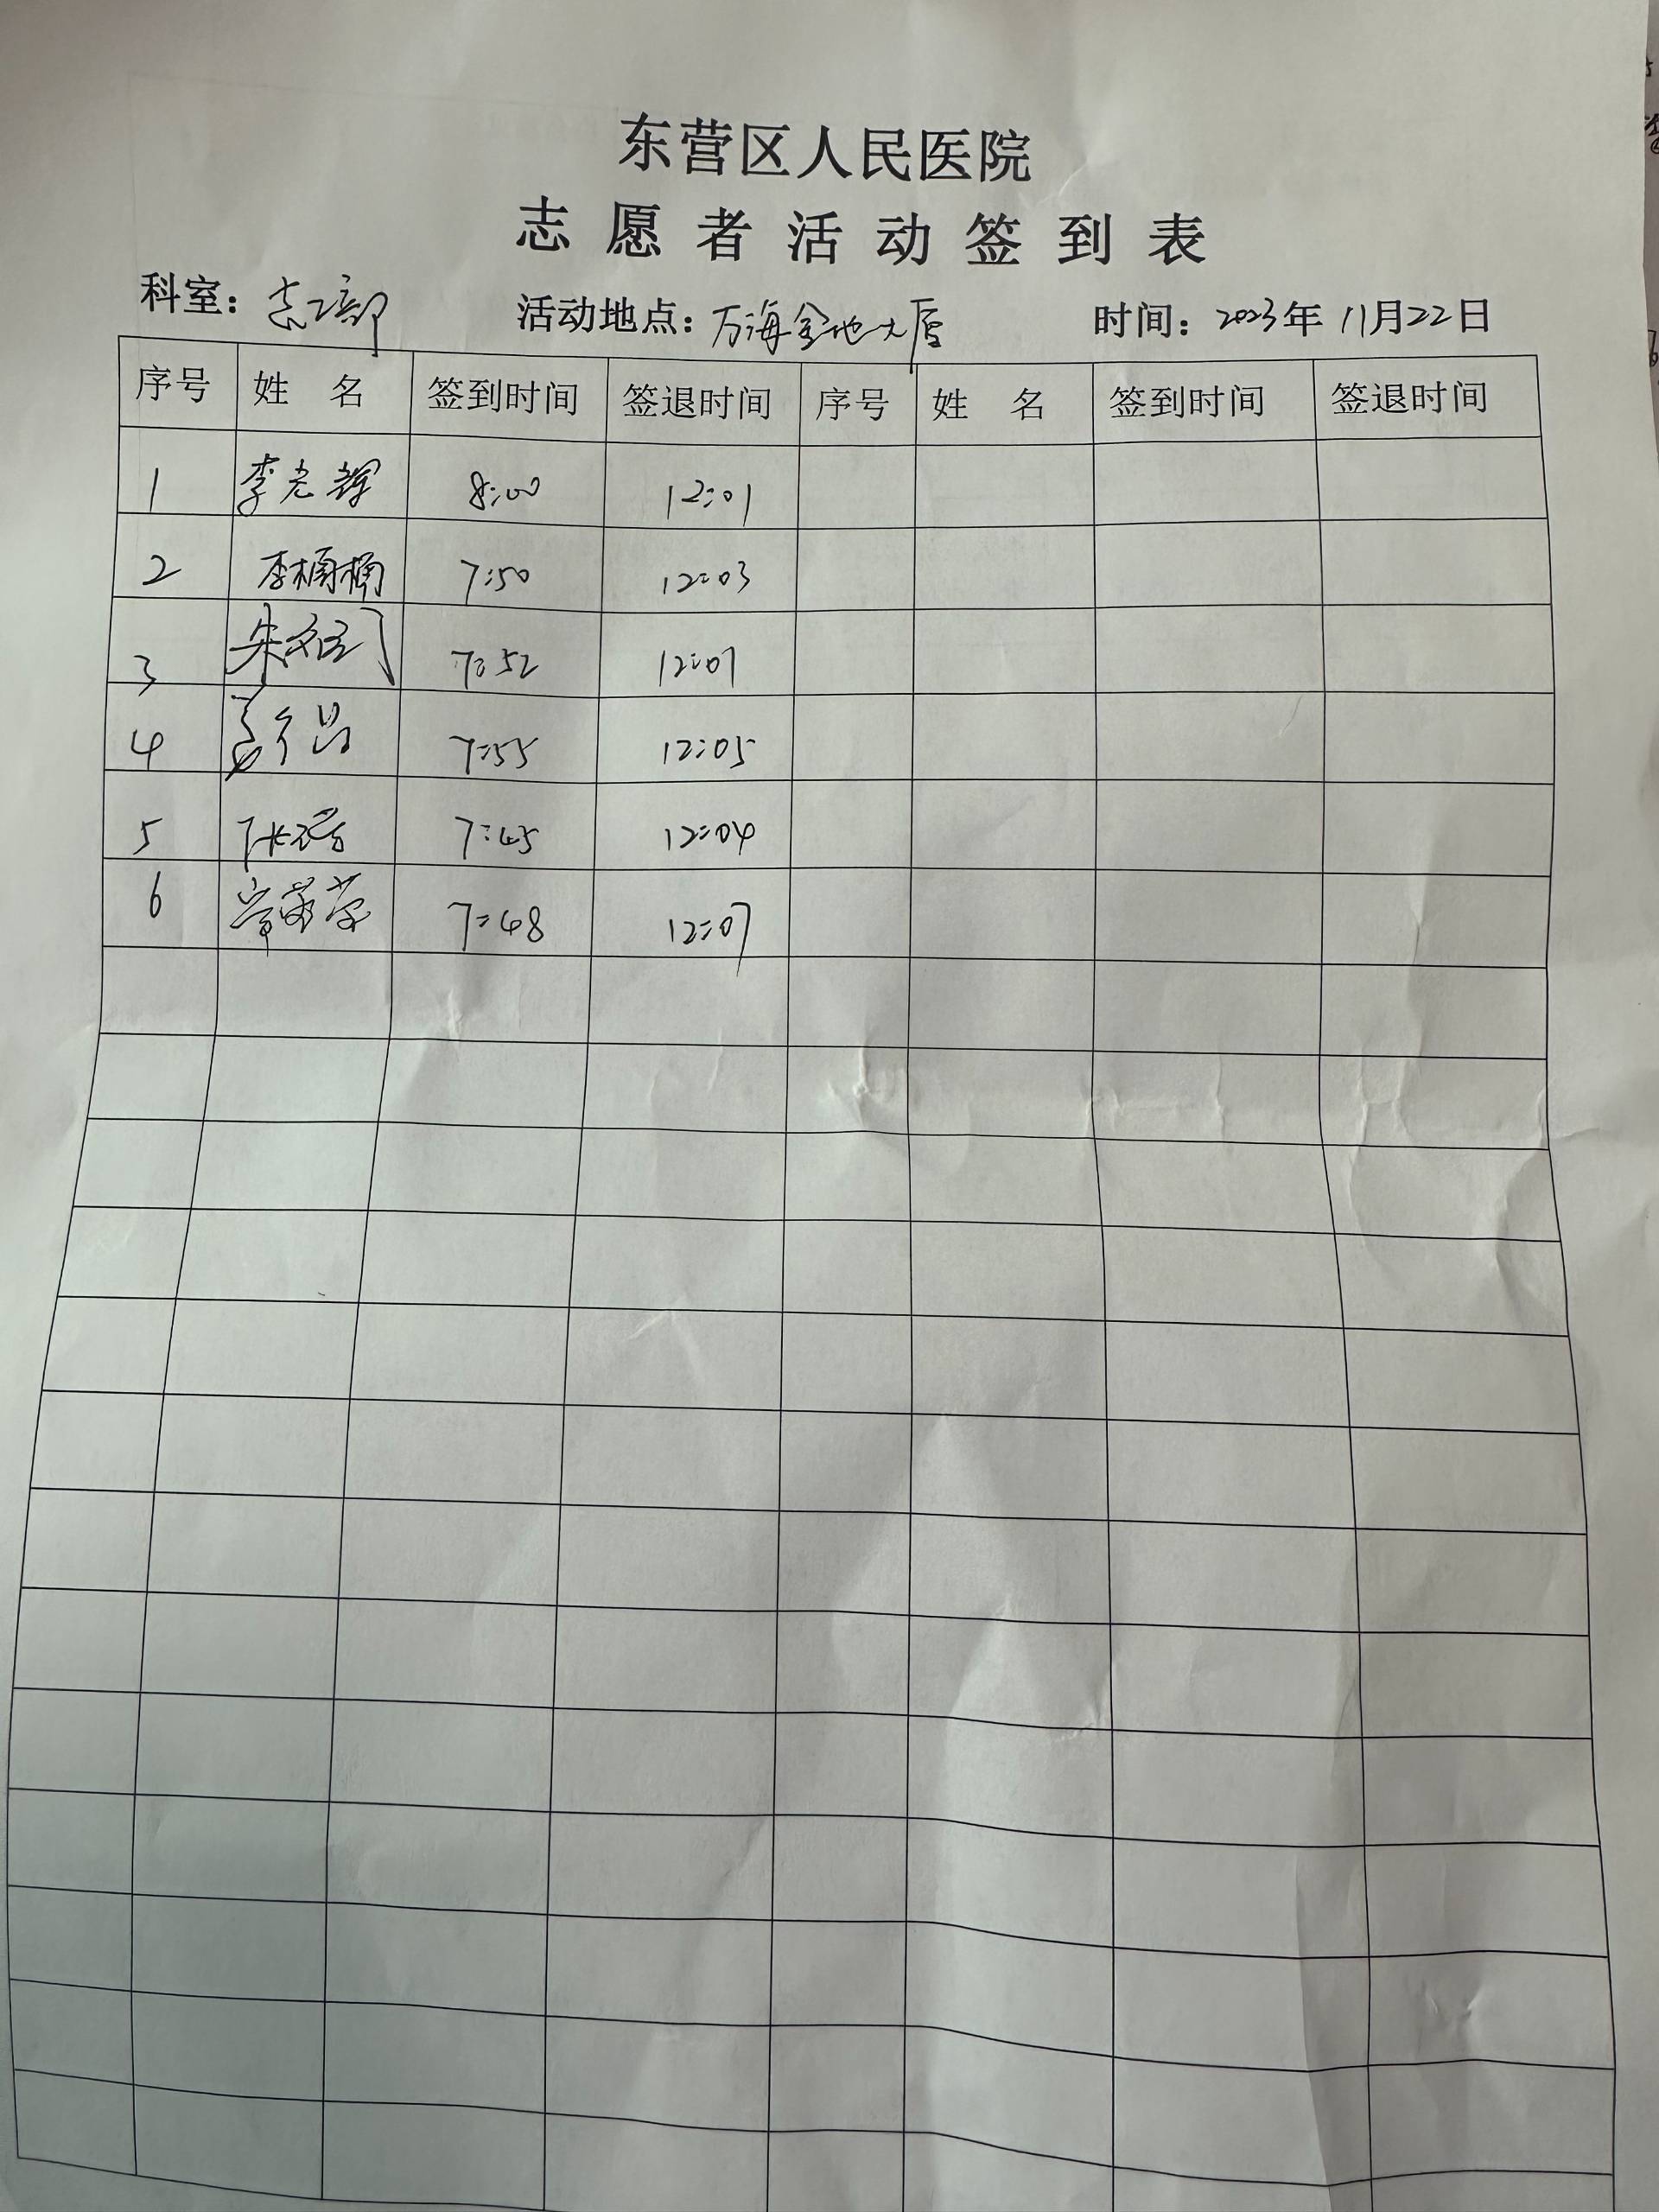 东营区人民医院
志愿者活动签到表
科室： 活动地点：万海金地大厦 时间：2023年11月22日
序号 姓名 签到时间 签退时间 序号 姓名 签到时间 签退时间
1 李光辉 8:00 12:01
2 李楠楠 7:50 12:03
3 朱 7:52 12:07
4 7:55 12:05
5 张 7:45 12:04
6 常 7:48 12:07